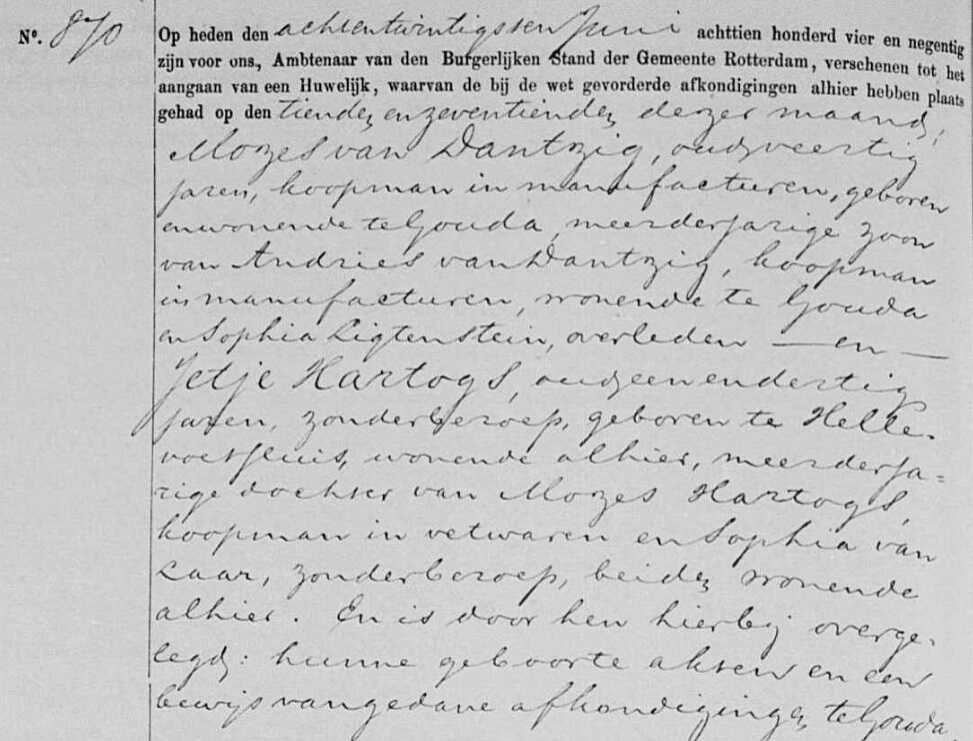 No. 870
Op heden den achtentwintigsten Juni achttien honderd vier en negentig
zijn voor ons, Ambtenaar van den Burgerlijken Stand der Gemeente Rotterdam, verschenen tot het
aangaan van een Huwelijk, waarvan de bij de wet gevorderde afkondigingen alhier hebben plaats
gehad op den tienden en zeventienden dezer maand,
Mozes van Dantzig, oud veertig
jaren, koopman in manufacturen, geboren
en wonende te Gouda, meerderjarige zoon
van Andries van Dantzig, koopman
in manufacturen, wonende te Gouda
en Sophia Ligtenstein, overleden — en —
Jetje Hartogs, oud eenendertig
jaren, zonder beroep, geboren te Helle-
voetsluis, wonende alhier, meerderja=
rige dochter van Mozes Hartogs,
koopman in vetwaren en Sophia van
Laar, zonder beroep, beiden wonende
alhier. En is door hen hierbij overge-
legd: hunne geboorte akten en een
bewijs van gedane afkondigingen te Gouda.